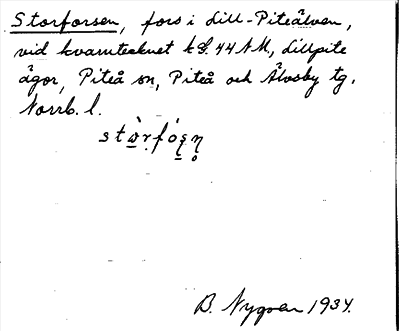 Storforsen, fors i Lill-Piteälven,
vid kvarntecknet kg. 44 NM, Lillpite
ägor, Piteå sn, Piteå och Älvsby tg.
Norrb. l.
B. Nygren 1934.